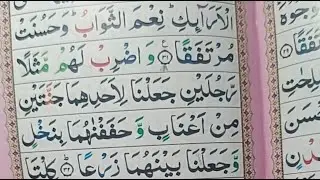 الْاَرَآئِكِ ؕ نِعْمَ الثَّوَابُ ؕ وَحَسُنَتْ
مُرْتَفَقًا ﴿۳۱﴾ وَاضْرِبْ لَهُمْ مَّثَلًا
رَّجُلَيْنِ جَعَلْنَا لِاَحَدِهِمَا جَنَّتَيْنِ
مِنْ اَعْنَابٍ وَّ حَفَفْنٰهُمَا بِنَخْلٍ
وَّجَعَلْنَا بَيْنَهُمَا زَرْعًا ﴿۳۲﴾ كِلْتَا